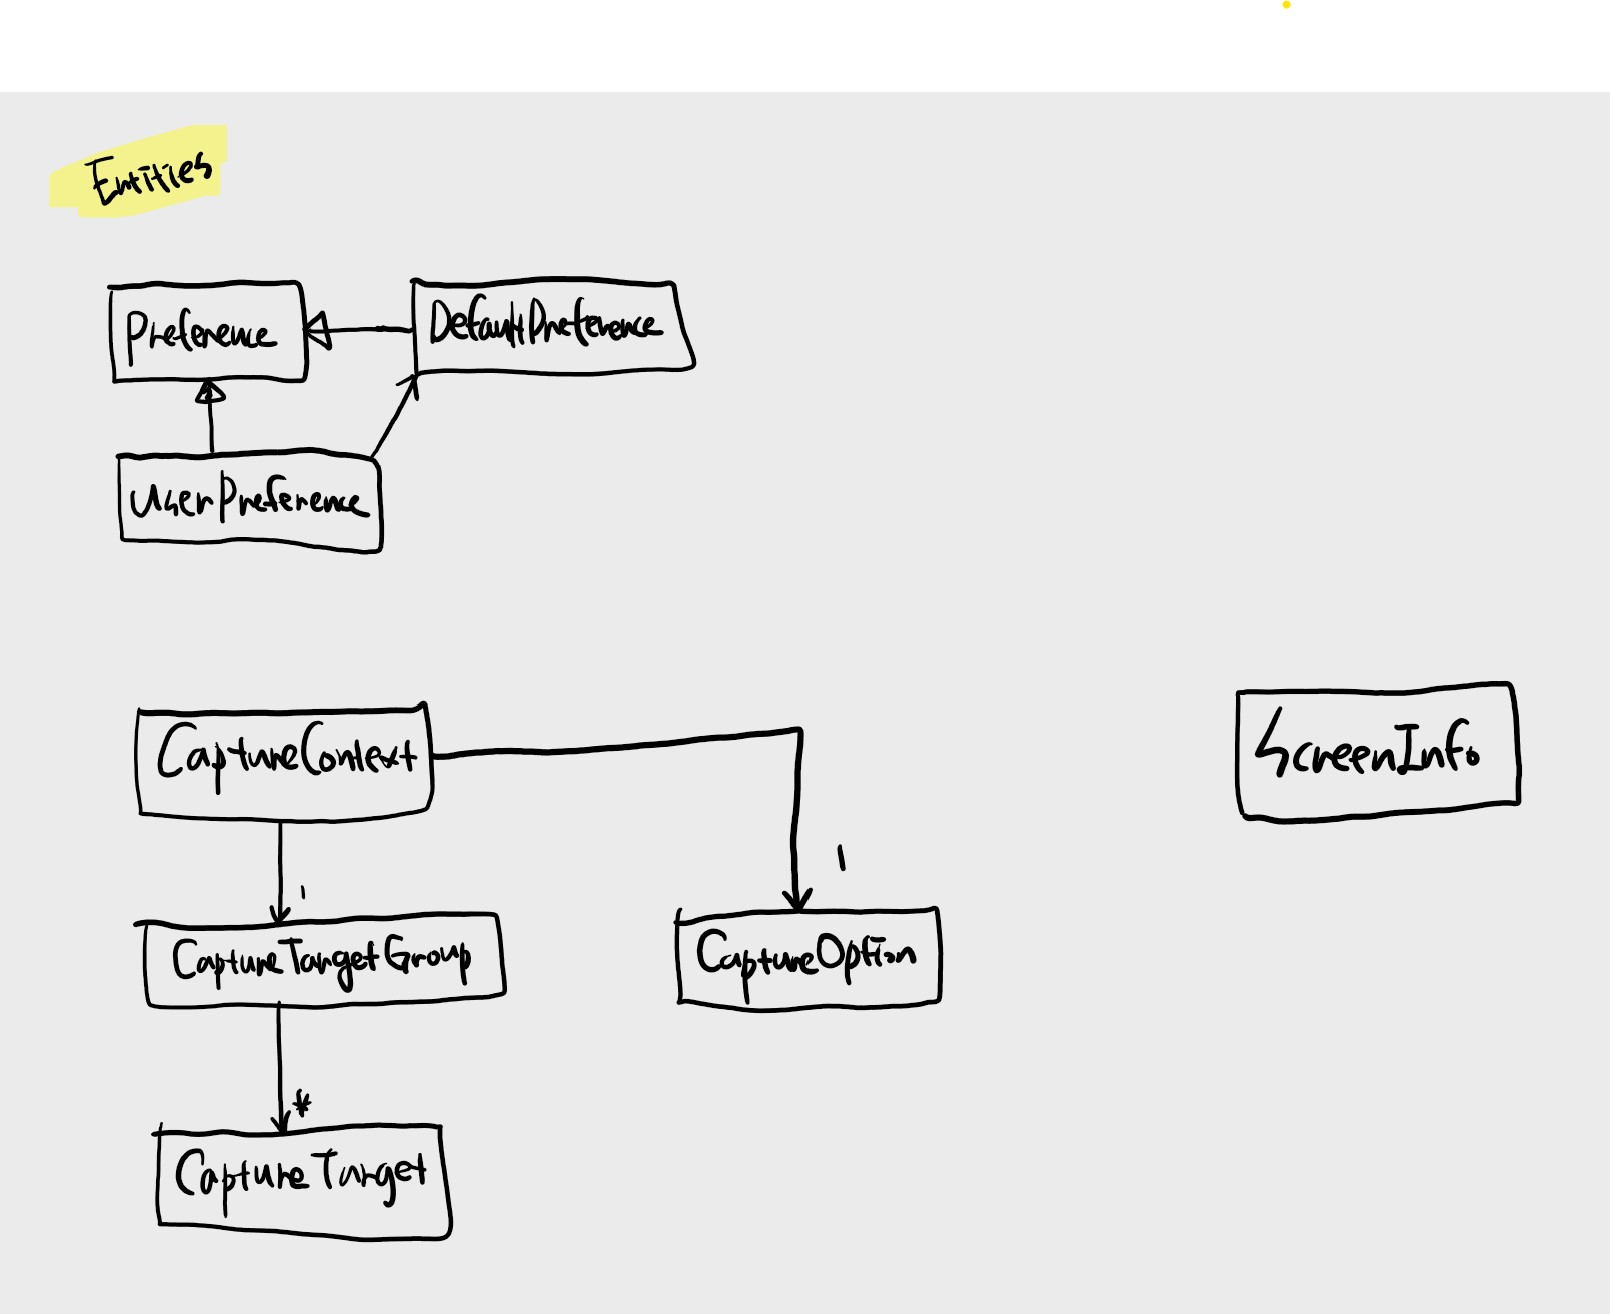 Entities
Preference
DefaultPreference
UserPreference
CaptureContext
ScreenInfo
1
1
CaptureTargetGroup
CaptureOption
*
CaptureTarget